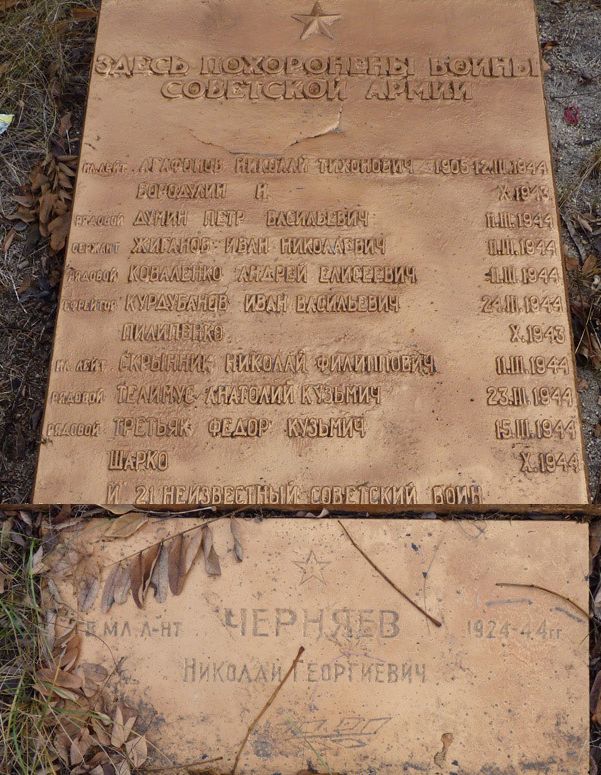 ЗДЕСЬ ПОХОРОНЕНЫ ВОИНЫ
СОВЕТСКОЙ АРМИИ
МЛ. ЛЕЙТ. АГАФОНОВ НИКОЛАЙ ТИХОНОВИЧ 1905 12.III.1944
БОРОДУЛИН И. X.1943
РЯДОВОЙ ДУМИН ПЕТР ВАСИЛЬЕВИЧ 11.III.1944
СЕРЖАНТ ЖИГАНОВ ИВАН НИКОЛАЕВИЧ 11.III.1944
РЯДОВОЙ КОВАЛЕНКО АНДРЕЙ ЕЛИСЕЕВИЧ 11.III.1944
ЕФРЕЙТОР КУРДУБАНОВ ИВАН ВАСИЛЬЕВИЧ 24.III.1944
ПИЛИПЕНКО X.1943
МЛ. ЛЕЙТ. СКРЫННИК НИКОЛАЙ ФИЛИППОВИЧ 11.III.1944
РЯДОВОЙ ТЕЛИМУС АНАТОЛИЙ КУЗЬМИЧ 23.III.1944
РЯДОВОЙ ТРЕТЬЯК ФЕДОР КУЗЬМИЧ 15.III.1944
ШАРКО X.1944
И 21 НЕИЗВЕСТНЫЙ СОВЕТСКИЙ ВОИН
ГВ. МЛ. Л-НТ ЧЕРНЯЕВ 1924-44гг
НИКОЛАЙ ГЕОРГИЕВИЧ